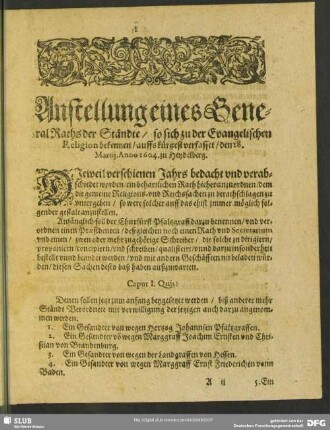 Anstellung eines Gene-
ral Raths der Ständte / so sich zu der Evangelischen
Religion bekennen / auffs kürtzest verfasset / den 18.
Martij. Anno 1604. zu Heydelberg.
DJeweil verschienen Jahrs bedacht vnd verab-
schiedet worden / ein beharrlichen Rath hieher anzuordnen / dem
die gemeine Religions- vnd Reichssachen zu berathschlagen zu
vntergeben / so were solcher auff das ehist immer möglich fol-
gender gestalt anzustellen.
Anfänglich soll der Churfürst Pfaltzgraff darzu benennen / vnd ver-
ordnen einen Præsidenten / deßgleichen noch einen Rath vnd Secretarium
vnd einen / zween oder mehr zugehörige Schreiber / die solche zu dirigiern /
proponiern / concipiern / vnd schreiben / qualificirn / vnnd darzu in sonderheit
bestellt vnnd beandt werden / vnd mit andern Geschäfften nit beladen wür-
den / diesen Sachen desto baß haben außzuwarten.
Caput I. Quis?
Denen sollen jetzt zum anfang beygesetzt werden / biß anderer mehr
Ständt Verordnete mit verwilligung der jetzigen auch darzu angenom-
men werden.
1. Ein Gesandter von wegen Hertzog Johannsen Pfaltzgraffen.
2. Ein Gesandter võ wegen Marggraff Joachim Ernsten vnd Chri-
stian von Brandenburg.
3. Ein Gesandter von wegen der Landgraffen von Hessen.
4. Ein Gesandter von wegen Marggraff Ernst Friederichen vonn
Baden.
A ij 5. Ein
SLUB
DFG